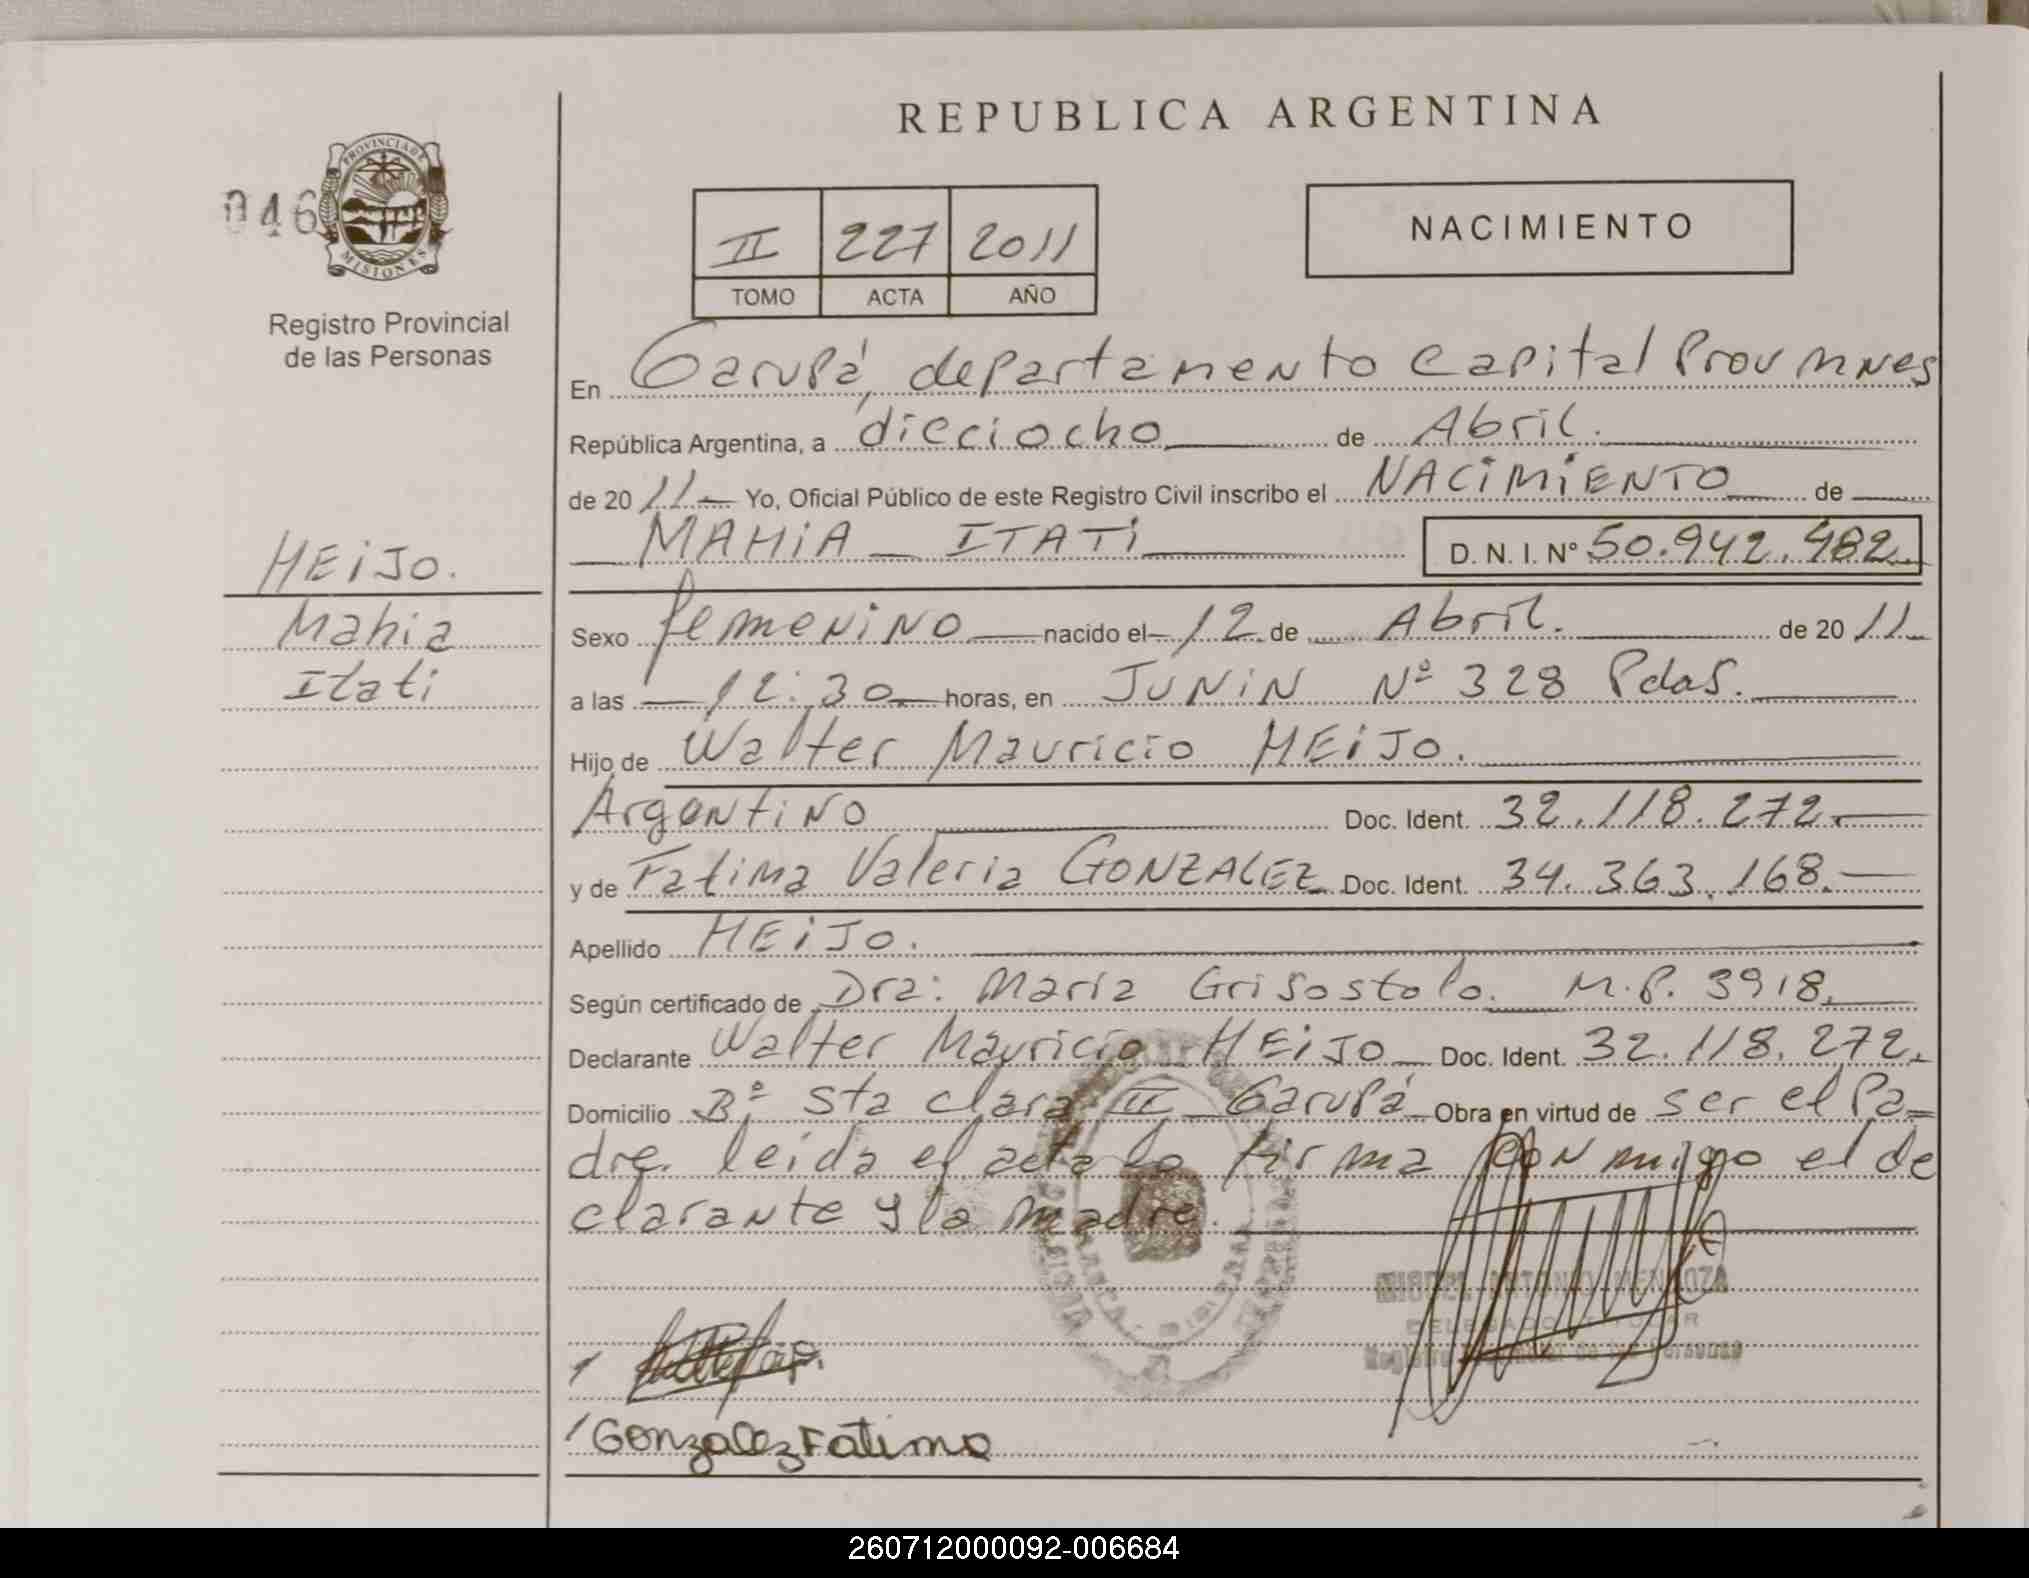 REPUBLICA ARGENTINA
046
PROVINCIA DE
MISIONES
Registro Provincial
de las Personas
II 227 2011
TOMO ACTA AÑO
NACIMIENTO
En Garupá, departamento Capital Prov Mnes
República Argentina, a dieciocho de Abril.
de 20 11 Yo, Oficial Público de este Registro Civil inscribo el NACIMIENTO de
MAHIA - ITATI D. N. I. Nº 50.942.482
HEIJO.
Mahia
Itati
Sexo femenino nacido el 12 de Abril. de 20 11
a las 12:30 horas, en JUNIN Nº 328 Pdas.
Hijo de Walter Mauricio HEIJO.
Argentino Doc. Ident. 32.118.272
y de Fatima Valeria GONZALEZ Doc. Ident. 34.363.168.
Apellido HEIJO.
Según certificado de Dra: Maria Grisostolo. M.P. 3918.
Declarante Walter Mauricio HEIJO Doc. Ident. 32.118.272.
Domicilio Bº Sta Clara II Garupá Obra en virtud de ser el Pa-
dre. leida el acta la firma conmigo el de
clarante y la madre.
MIGUEL ANTONIO MENDOZA
DELEGADO TITULAR
Registro Provincial de las Personas
Gonzalez Fatima
260712000092-006684